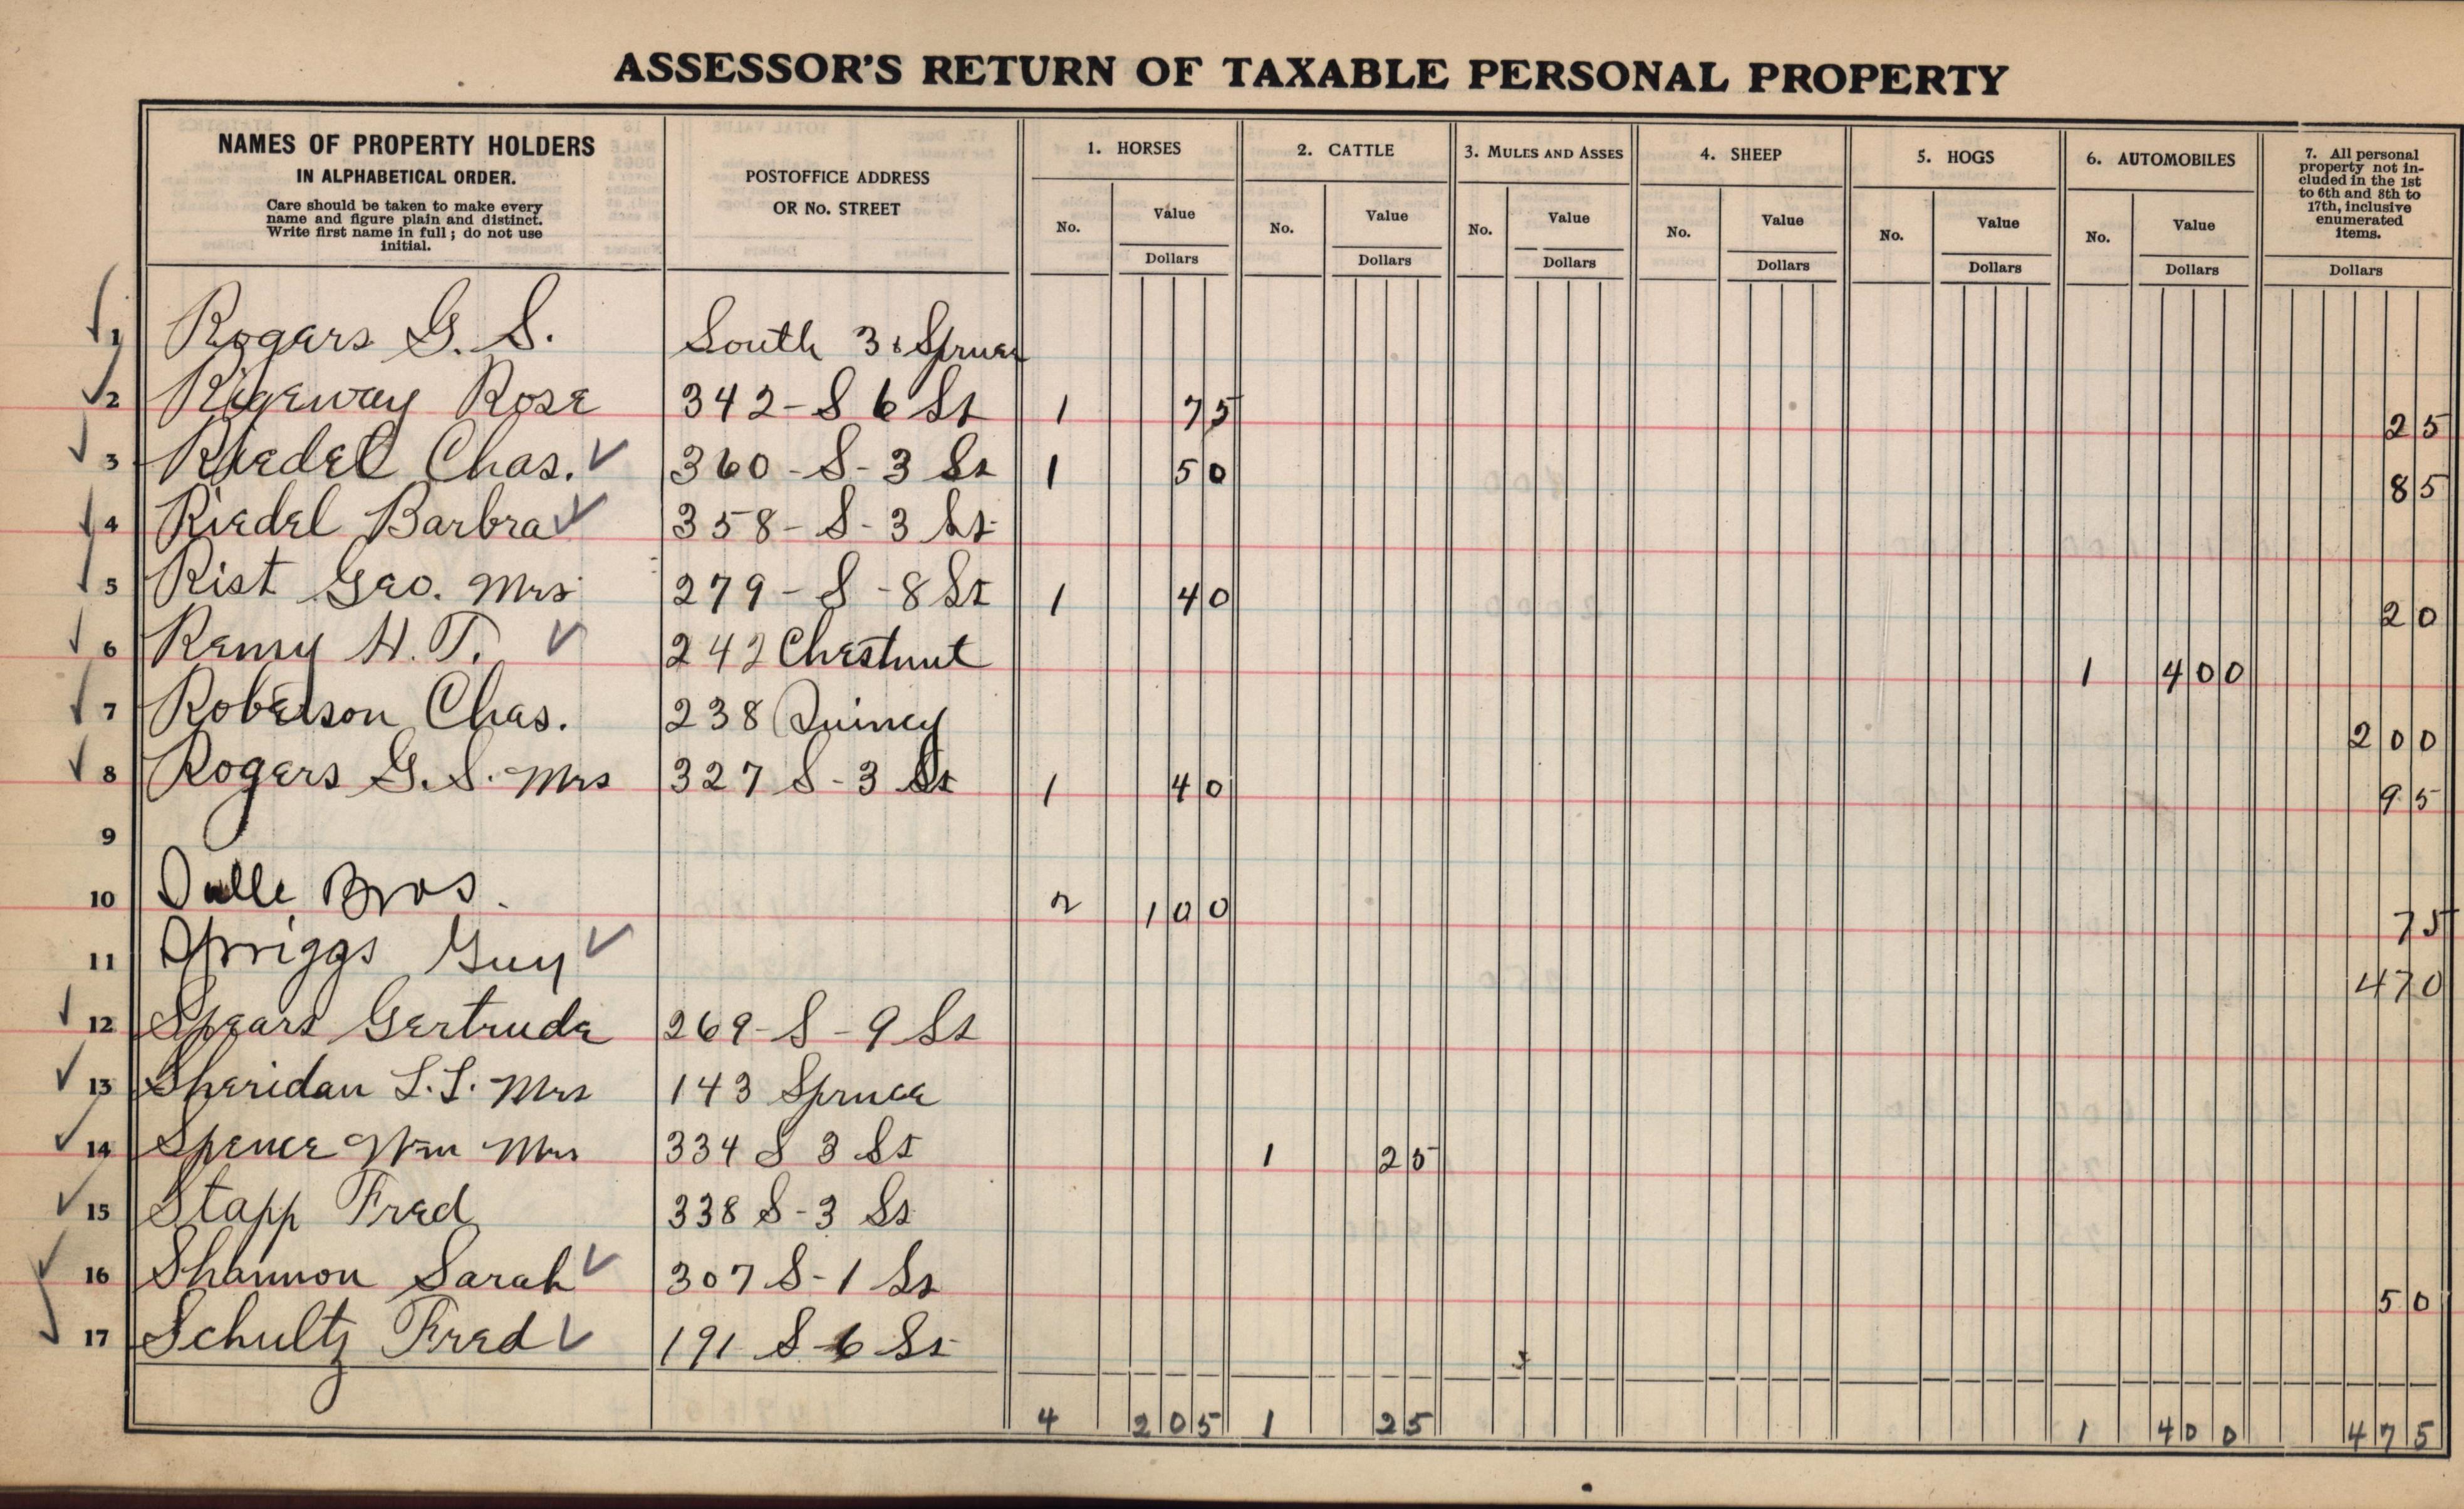 ASSESSOR'S RETURN OF TAXABLE PERSONAL PROPERTY
NAMES OF PROPERTY HOLDERS
IN ALPHABETICAL ORDER.
Care should be taken to make every
name and figure plain and distinct.
Write first name in full; do not use
initial.
POSTOFFICE ADDRESS
OR No. STREET
1. HORSES
No.
Value
Dollars
2. CATTLE
No.
Value
Dollars
3. MULES AND ASSES
No.
Value
Dollars
4. SHEEP
No.
Value
Dollars
5. HOGS
No.
Value
Dollars
6. AUTOMOBILES
No.
Value
Dollars
7. All personal
property not in-
cluded in the 1st
to 6th and 8th to
17th, inclusive
enumerated
items.
Dollars
1 Rogars G. S. South 3 & Spruce
2 Rigeway Rose 342-S 6 St 1 75 25
3 Riedel Chas. 360-S-3 St 1 50 85
4 Riedel Barbra 358-S-3 St
5 Rist Geo. Mrs 279-S-8 St 1 40 20
6 Remy H. T. 242 Chestnut 1 400
7 Roberson Chas. 238 Quincy 200
8 Rogers G. S. Mrs 327 S-3 St 1 40 95
9
10 Dulle Bros. 2 100 75
11 Spriggs Guy 470
12 Spears Gertrude 269-S-9 St
13 Sheridan L. L. Mrs 143 Spruce
14 Spence Wm Mrs 334 S 3 St 1 25
15 Stapp Fred 338 S-3 St
16 Shannon Sarah 307 S-1 St 50
17 Schultz Fred 191 S-6 St
4 205 1 25 1 400 475